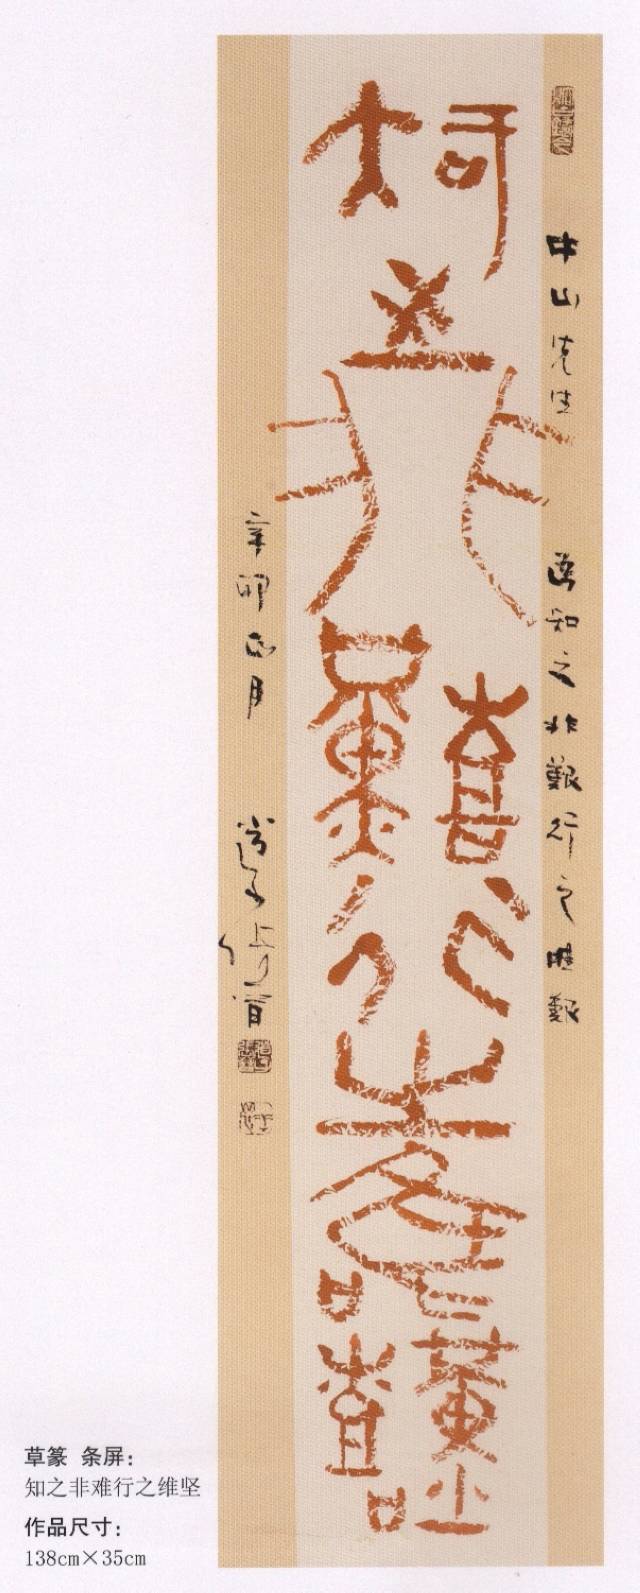 中山先生 語知之非艱行之唯艱
知之非艱行之唯艱
辛卯正月
草篆 条屏：
知之非难行之维坚
作品尺寸：
138cm×35cm